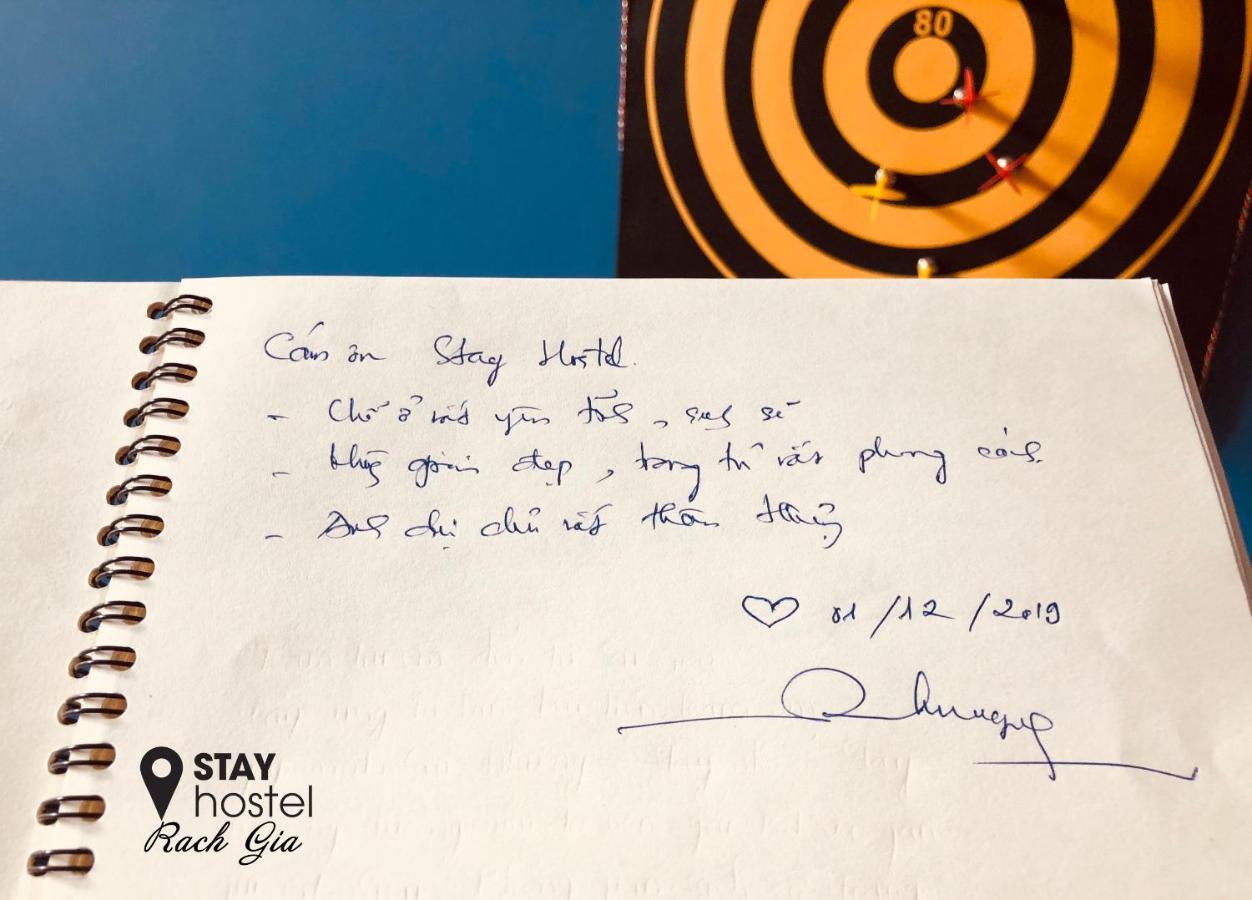 80
Cám ơn Stay Hostel.
- Chỗ ở rất yên tĩnh, sạch sẽ
- không gian đẹp, trang trí rất phong cách.
- Anh chị chủ rất thân thiện
♡ 01/12/2019
STAY
hostel
Rach Gia